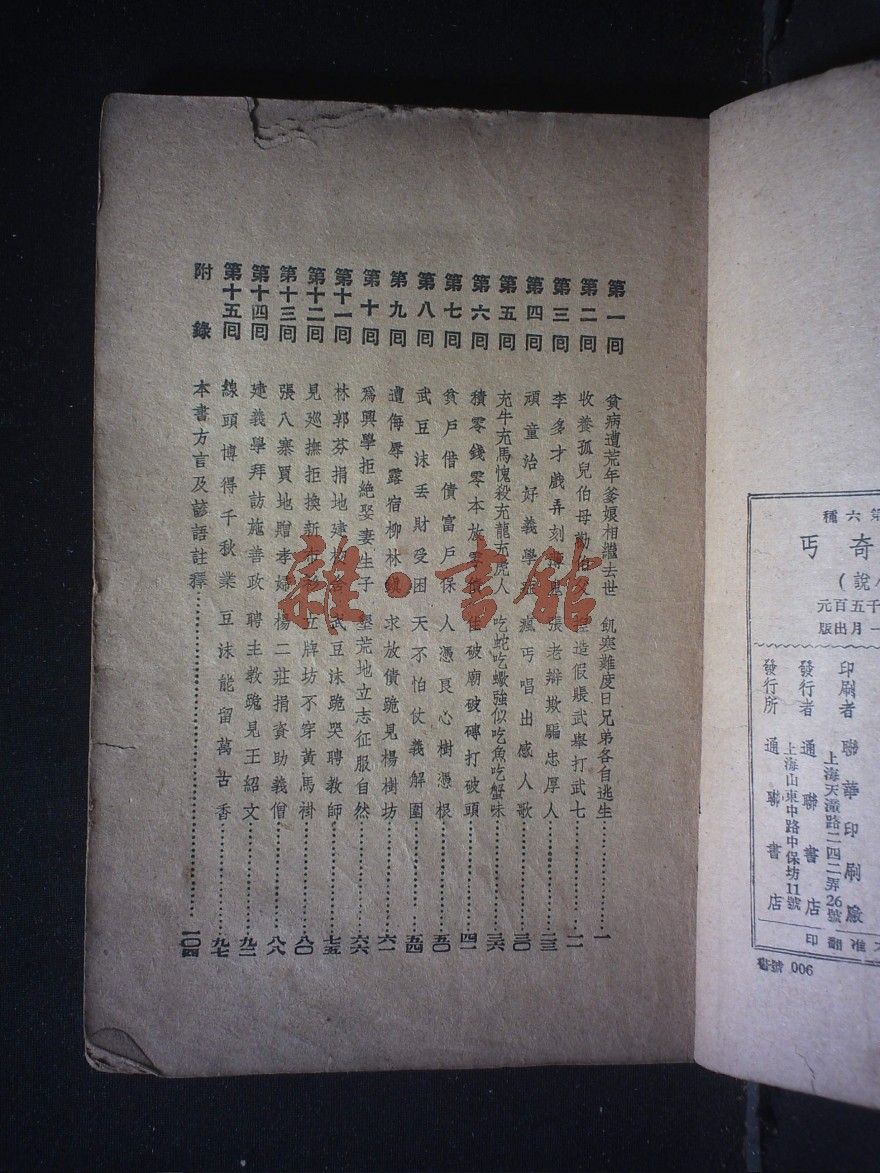 第一回 貧病遭荒年爹娘相繼去世 飢寒難度日兄弟各自逃生 一
第二回 收養孤兒伯母勸伯父 捏造假賬武舉打武七 一一
第三回 李多才戲弄刻薄 張老辮欺騙忠厚人 二三
第四回 頑童治好義學 瘋丐唱出感人歌 三〇
第五回 充牛充馬愧殺充龍充虎人 吃蛇吃蠍強似吃魚吃蟹味 三六
第六回 積零錢零本放零 住破廟破磚打破頭 四一
第七回 貧戶借債富戶保 人憑良心樹憑根 五〇
第八回 武豆沫丟財受困 天不怕仗義解圍 五四
第九回 遭侮辱露宿柳林鎮 求放債跪見楊樹坊 六一
第十回 爲興學拒絕娶妻生子 墾荒地立志征服自然 六六
第十一回 林郭芬捐地建校舍 武豆沫跪哭聘教師 七五
第十二回 見巡撫拒換新衣衫 立牌坊不穿黃馬褂 八〇
第十三回 張八寨買地贈孝婦 楊二莊捐資助義僧 八八
第十四回 建義學拜訪施善政 聘主教跪見王紹文 九二
第十五回 線頭博得千秋業 豆沫能留萬古香 九七
附錄 本書方言及諺語註釋 一〇四
雜·書館
第六種
奇丐
小說)
千五百元
一月出版
印刷者 聯華印刷廠
上海天潼路二四二弄26號
發行者 通聯書店
發行所 通聯書店
上海山東中路中保坊11號
准翻印
書號 006